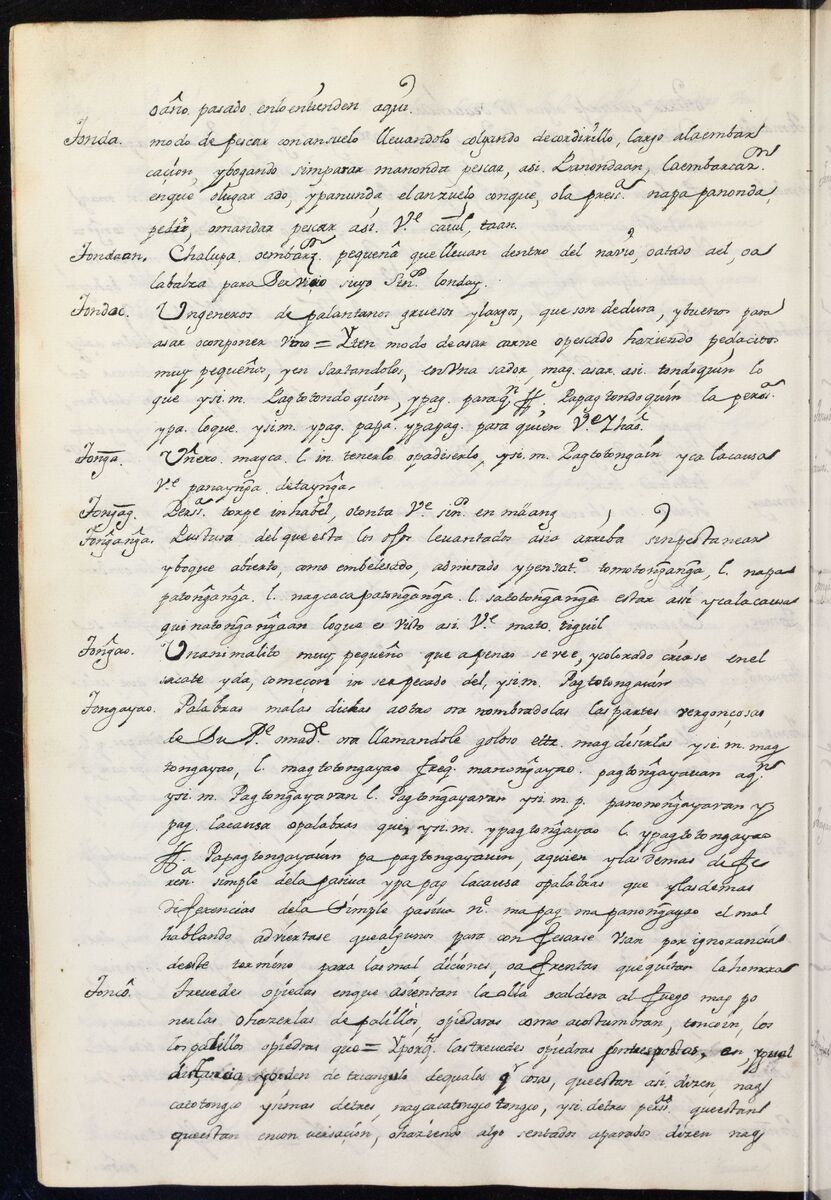 o año. pasado. enlo entienden aqui.
Tonda. modo de pescar con ansuelo llevandolo colgando de cordirillo, largo alaembar
cacion, y bogando sin parar manonda pescar, asi. Panondaan, laembarcaz.n
enque, olugar ado, ypanunda el anzuelo, conque, ola pres.a napa panonda,
pedir, omandar pescar asi. V.e cavil, taan.
Tondaan. Chalupa. oembarz.n pequeña que llevan dentro del navio, oatado ael, oa
labalza para Servicio suyo Sin.o londay.
Tondoc. Un generos de palantanos gruesos ylargos, que son dedura, ybuenos para
asar ocomponer vino = Yten modo de asar carne opescado haziendo pedacitos
muy pequeños, yen sartandolos, en Vna sador, mag. asar. asi. tondoquin lo
que ysi.m. Pagtotondoquin, ypag. paraq.n #. Papagtondoquin la perso.a
ypa. loque. ysi.m. ypag. papa. ypapag. para quien V.e
Tonga. magca. l. in. tenerlo opadiserlo, ysi.m. Pagtotongain yca lacausa
V.e panaynga. detaynga.
Tongag. Perso.a torpe in habel, otonta V.e sin.o en mäang
Tonganga. Postura del que esta los ojos levantados asia arriba sinpestanear
yboque abierto, como embelesado, admirado ypensat.o tomotonganga, l. napa
patonganga. l. nagcacapatonganga. l. sacotonganga estar asi ycalacausa
quinatongangaan loque es visto asi. V.e mato. tiguil
Tongao. Un animalito muy pequeño que apenas se vee, ycolorado criase enel
sacate yda, começon in ser pecado del, ysi.m. Pagtotongauin
Tongayao. Palabras malas dichas aotro ora nombradolas las partes vergonçosas
de Su P.e omad.e ora llamandole goloso ettz. mag desirlas ysi.m. mag
tongayao, l. magtotongayao freq. manongayao. pagtongayauan aq.n
ysi.m. Pagtongayavan l. Pagtongayavan ysi.m. p. panonongayavan y
pag. lacausa opalabras que, ysi.m. ypagtongayao l. ypagtotongayao
#. Papagtongayauin pa pagtongayauin, aquien ylasdemas dife
ren.a simple dela pasiva ypa pag lacausa opalabras que ylasdemas
diferencias dela Simple pasiva n.e mapag mapanongayao el mal
hablando adviertase quealgunos para con fesarse Van por ignorancia
deeste termino para lasmal diciones, oafrentas quequitan lahonrra
Toncô. Trevedes opiedas enque asientan laolla ocaldera al fuego mag po
nerlas ohazerlas de palillos, opiedaras como acostumbran, toncoin, los
los palillos opiedras que = Yporq.e lastrevedes opiedras en, ygual
distancia yorden de triangulo dequales q.r cosas, queestan asi, dizen, nag
catotongco ysimas detres, nagcacatongcotongco, ysi. detres perso.s queestan
queestan enconversacion, ohaziendo algo sentados aparados dizen nag